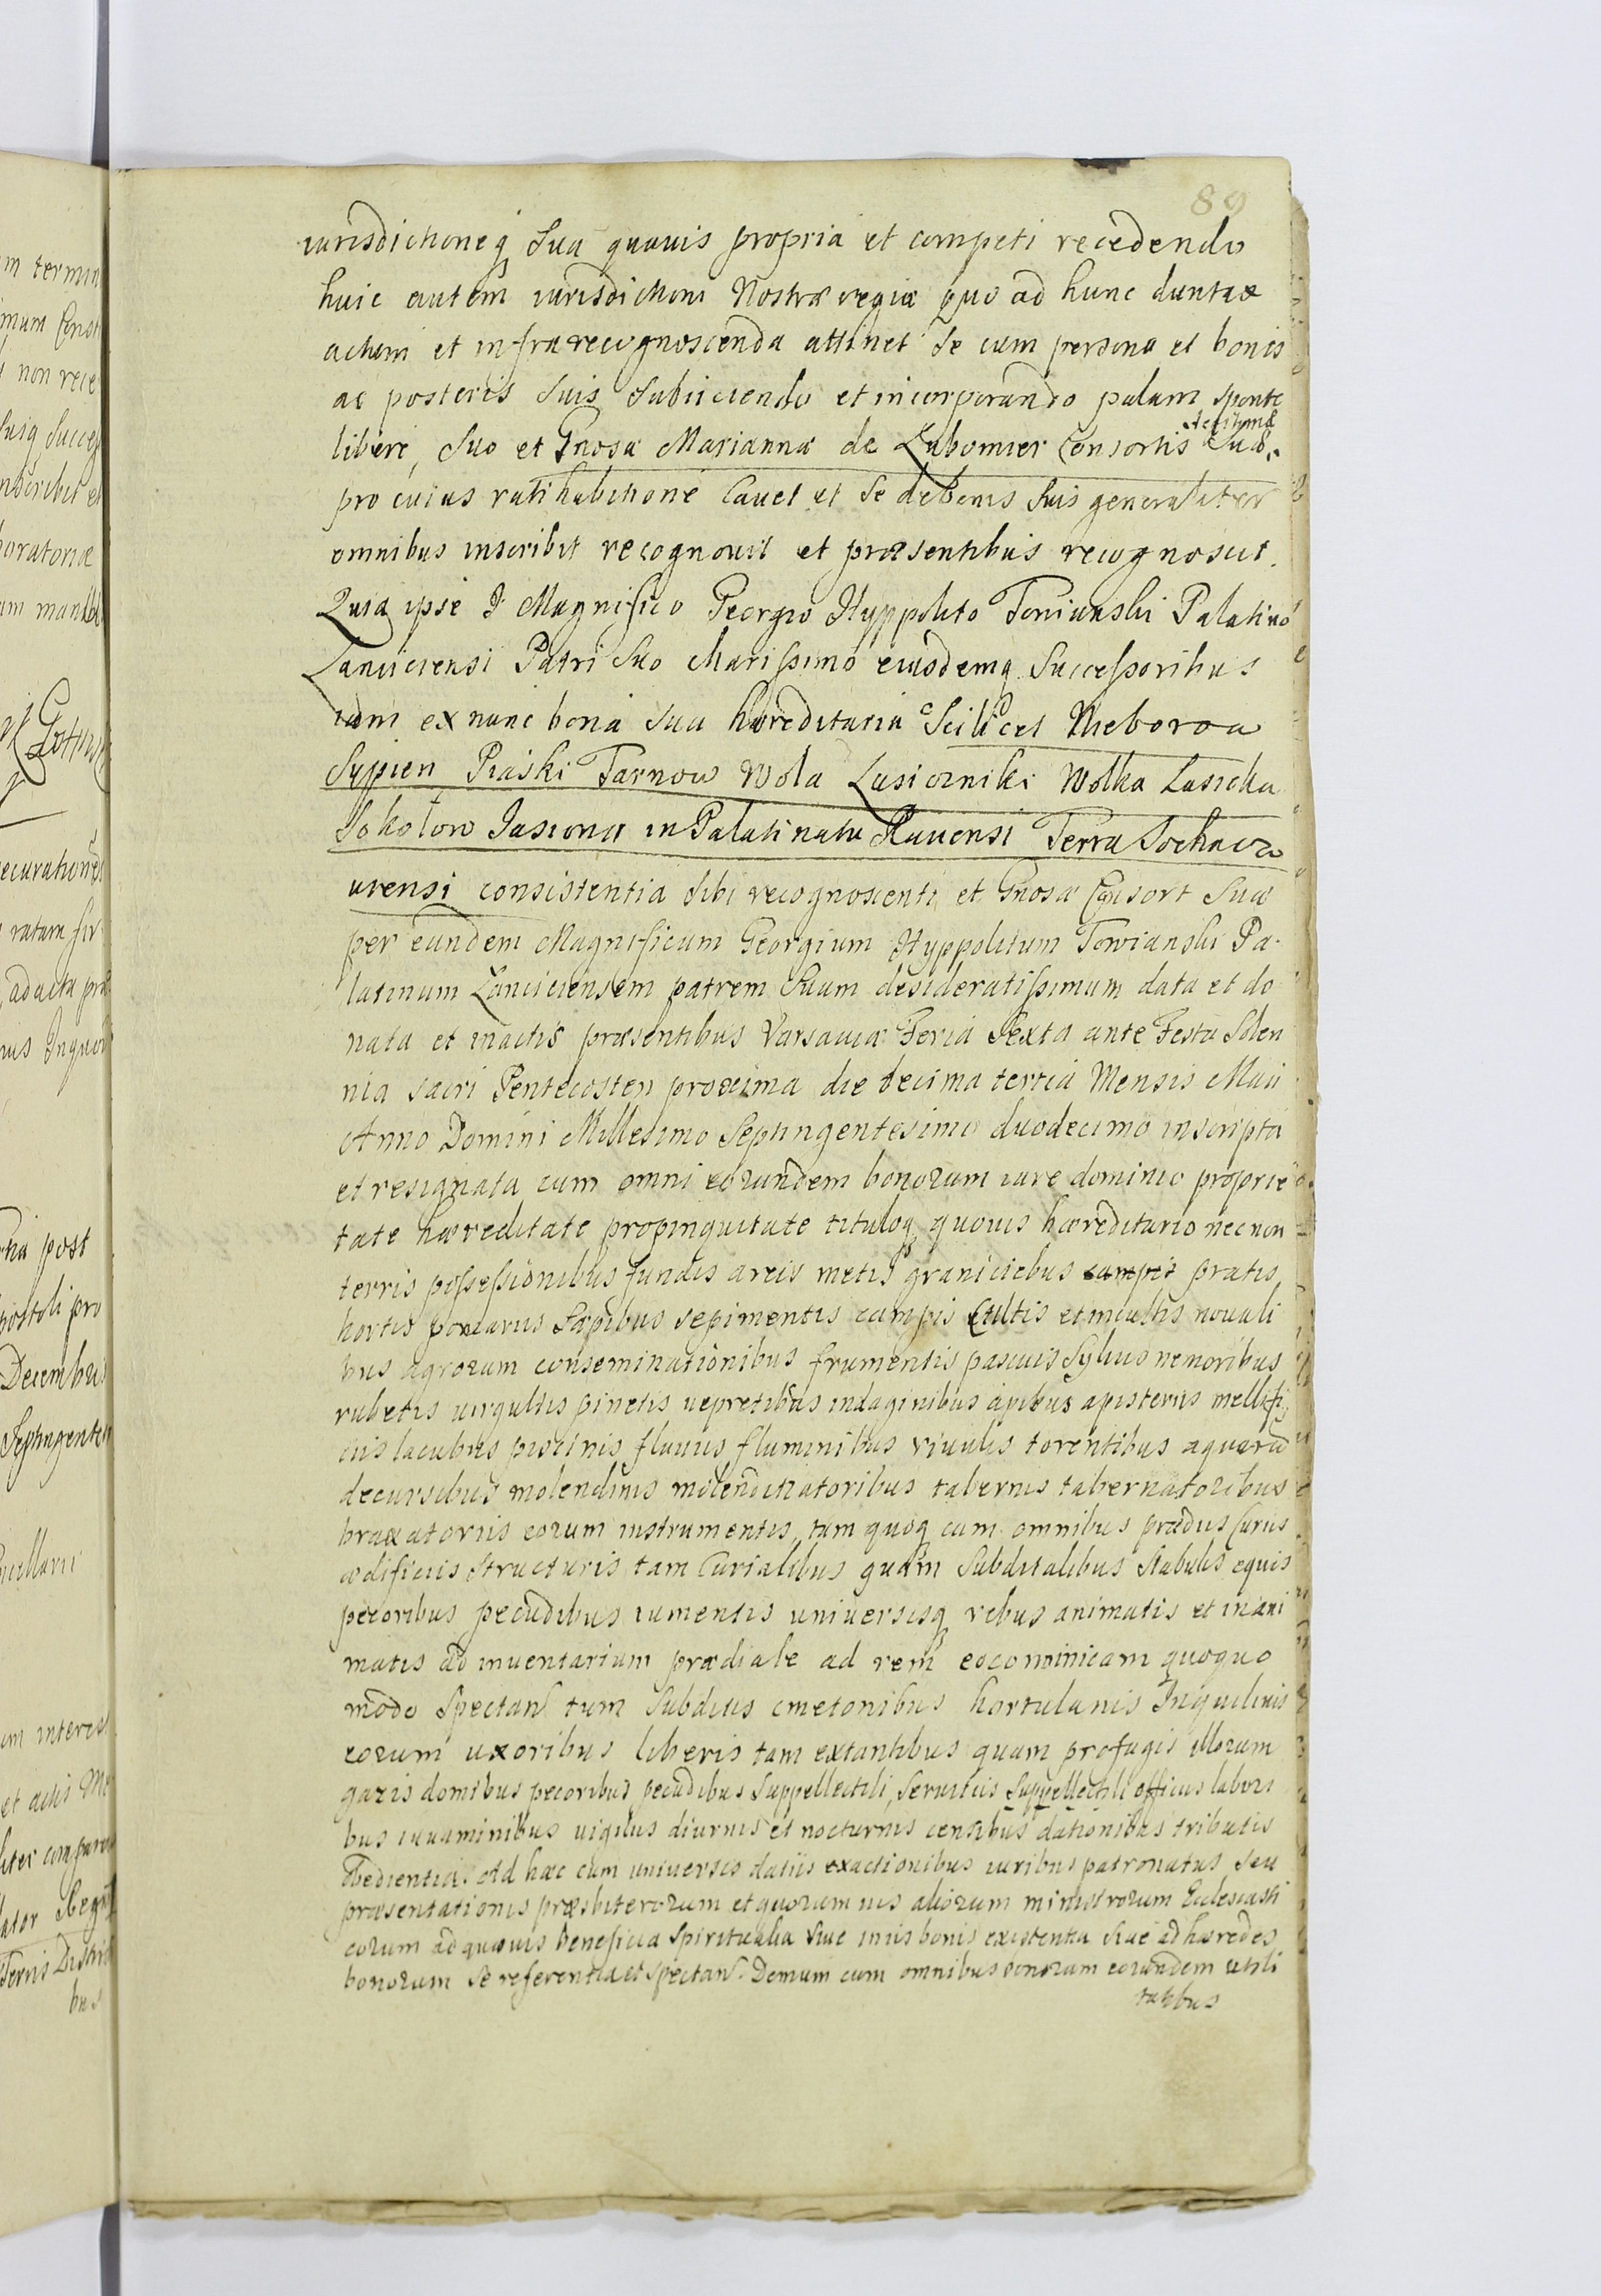 89
iurisdictioneq Sua quauis propria et competi recedendo
huic autem iurisdictioni Nostræ regiæ quo ad hunc duntax
actum et infra recognoscenda attinet Se cum persona et bonis
ac posteris Suis Subiiciendo et incorporando palam sponte
libere, Suo et Gnosæ Mariannæ de Lubomier Consortis Suæ
legitimæ
pro cuius ratihabitione Cauet et Se de bonis Suis generaliter
omnibus inscribit recognouit et præsentibus recognoscit.
Quia ipse Magnifico Georgio Hyppolito Towianski Palatino
Lanciciensi Patri Suo Charissimo eiusdemq Successoribus
iam ex nunc bona sua hæreditaria Scilicet Nieborow
Sypien Piaski Tarnow Wola Lasiczniki Wolka Lasicka
Sokołow Jasiona in Palatinatu Rauensi Terra Sochacz
uiensi consistentia Sibi recognoscenti et Gnosæ Consort Suæ
per eundem Magnificum Georgium Hyppolitum Towianski Pa-
latinum Lanciciensem patrem Suum desideratissimum data et do
nata et in actis præsentibus Varsauiæ Feria Sexta ante Festa Solen
nia sacri Pentecosten proxima die decima tertia Mensis Maii
Anno Domini Millesimo Septingentesimo duodecimo inscripta
et resignata cum omni eorundem bonorum iure dominio proprie
tate hæreditate propinquitate tituloq quouis hæreditario necnon
terris possessionibus fundis areis metis graniciebus campis pratis
hortis pomariis Sæpibus sepimentis campis Cultis et incultis nouali
bus agrorum conseminationibus frumentis pascuis Syluis nemoribus
rubetis uirgultis pinetis uepretibus indaginibus apibus apisteriis mellifi
ciis lacubus piscinis fluuiis fluminibus riuulis torentibus aquarū
decursibus molendinis molenditatoribus tabernis tabernatoribus
braxatoriis eorum instrumentis, tum quoq cum omnibus prædiis Curiis
ædificiis structuris tam Curialibus quam Subditalibus Stabulis equis
pecoribus pecudibus iumentis uniuersisq rebus animatis et inani
matis ad inuentarium prædiale ad rem eoconomicam quoquo
modo Spectan tum Subditis cmetonibus hortulanis Inquilinis
eorum uxoribus liberis tam extantibus quam profugis illorum
gazis domibus pecoribus pecudibus Suppellectili, Seruitiis Suppellectili officiis labori
bus iuuaminibus uigiliis diurnis et nocturnis censibus dationibus tributis
obedientia. Ad hæc cum uniuersis datiis exactionibus iuribus patronatus Seu
præsentationis præsbiterorum et quorumuis aliorum ministrorum Ecclesiasti
corum ad quæuis beneficia Spiritualia Siue in iis bonis existentia Siue ad hæredes
bonorum Se referentia et spectan. Demum cum omnibus bonorum eorundem utili
tatibus